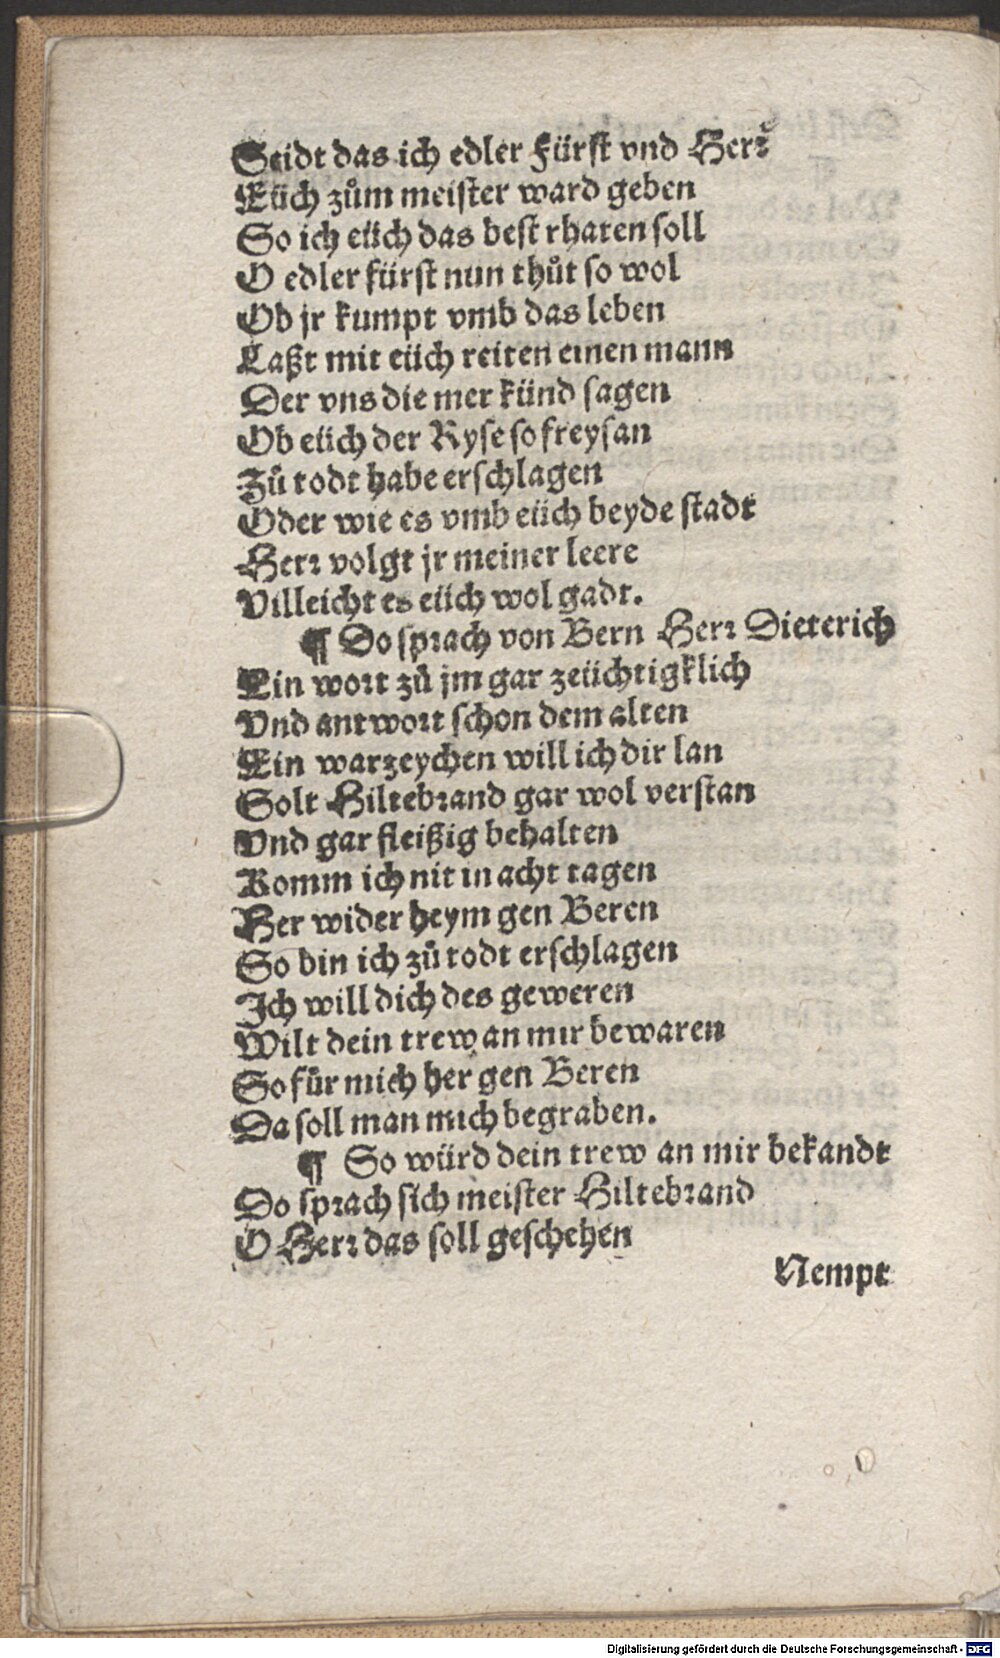 Seidt das ich edler Fürſt vnd Herꝛ
Eüch zům meiſter ward geben
So ich eüch das beſt rhaten ſoll
O edler fürſt nun thůt ſo wol
Ob jr kumpt vmb das leben
Laßt mit eüch reiten einen mann
Der vns die mer künd ſagen
Ob eüch der Ryſe ſo freyſan
Zů todt habe erſchlagen
Oder wie es vmb eüch beyde ſtadt
Herꝛ volgt jr meiner leere
Villeicht es eüch wol gadt.
¶ Do ſpꝛach von Bern Herꝛ Dieterich
Ein woꝛt zů jm gar zeüchtigklich
Vnd antwoꝛt ſchon dem alten
Ein warzeychen will ich dir lan
Solt Hiltebꝛand gar wol verſtan
Vnd gar fleißig behalten
Komm ich nit in acht tagen
Her wider heym gen Beren
So bin ich zů todt erſchlagen
Ich will dich des geweren
Wilt dein trew an mir bewaren
So für mich her gen Beren
Da ſoll man mich begraben.
¶ So würd dein trew an mir bekandt
Do ſpꝛach ſich meiſter Hiltebꝛand
O Herꝛ das ſoll geſchehen
Nempt
Digitalisierung gefördert durch die Deutsche Forschungsgemeinschaft - DFG